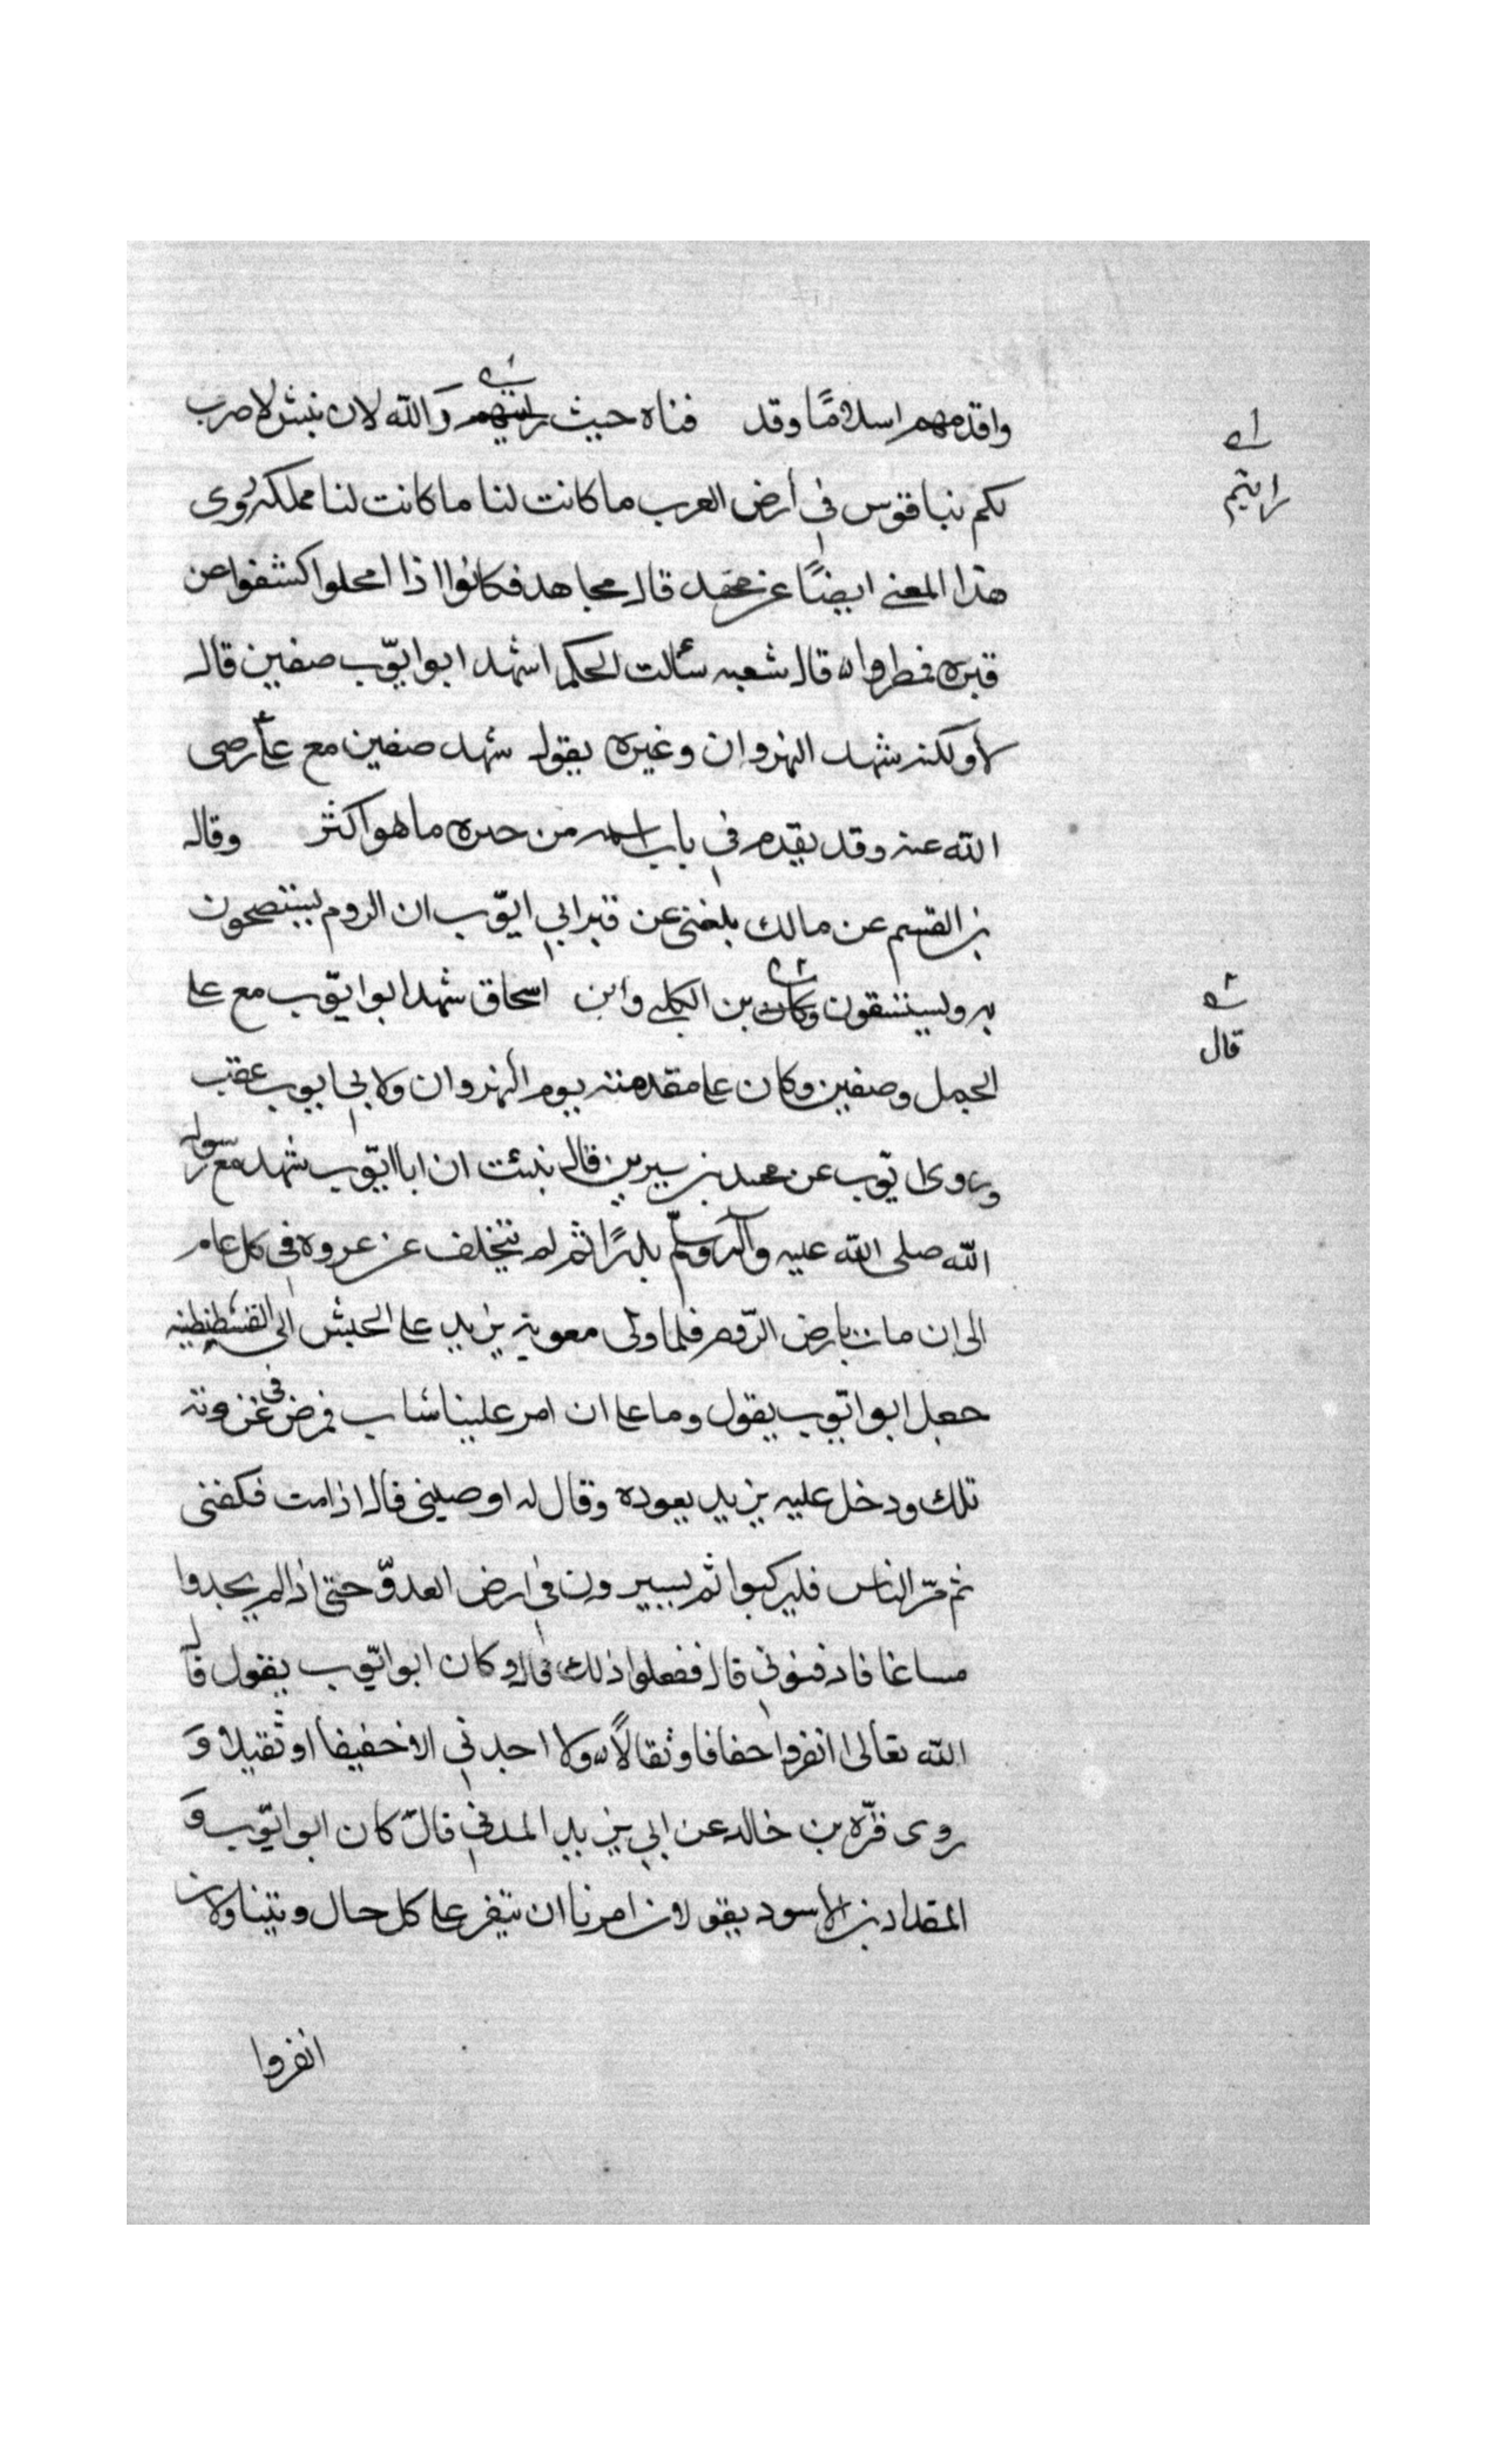 واقدمهم اسلامًا وقد فناه حيث رايتهم والله لان نبش لا ضرب
لكم بناقوس في أرض العرب ما كانت لنا ما كانت لنا مملكه روى
هذا المعنى ايضًا عن مجاهد قال مجاهد فكانوا اذا امحلوا كشفوا عن
قبره فطروا قال شعبه سألت الحكم اشهد ابوايوّب صفين قال
لا ولكنه شهد النهروان وغيره يقول شهد صفين مع علي رضى
الله عنه وقد يقدم في باب اسمه من حبره ما هو اكثر وقال
بن القسم عن مالك بلغنى عن قبر ابي ايوّب ان الروم يستصحون
به وليستسقون وكان بن الكلبي وابن اسحاق شهد ابوا يوّب مع على
الجمل وصفين وكان على مقدمته يوم النهروان ولابي ايوب عقب
وروى ايوّب عن محمد بن سيرين قال نبئت ان ابا ايوّب شهد مع رسول
الله صلى الله عليه وآله وسلّم بدرًا ثم لم يتخلف عن غزوه في كل عام
الى ان مات بارض الرّوم فلما ولى معوية يزيد على الجيش الى القسطنطنيه
جعل ابوا يوّب يقول وما على ان امر علينا شاب فمرض في غزوته
تلك ودخل عليه يزيد يعوده وقال له اوصيني قال اذا مت فكفنى
ثم مرّ الناس فليركبوا ثم يسيرون في ارض العدوّ حتى اذا لم يجدوا
مساغا فادفنوني قال ففعلوا ذلك قال وكان ابوا يوّب يقول قال
الله تعالى انفروا خفافا وثقالًا ولا اجدني الا خفيفا او ثقيلا و
روى قرّه بن خالد عن ابي يزيد المدني قال كان ابوا يوّب و
المقداد بن الاسود يقولان امرنا ان نفر على كل حال ويتناولان
انفروا
رايتم
قال